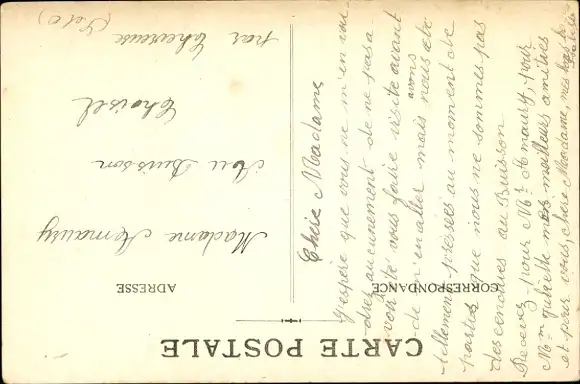 CARTE POSTALE
CORRESPONDANCE
ADRESSE
Chère Madame
J'espère que vous ne m'en vou-
drez aucunement de ne pas a-
voir été vous faire visite avant
de m'en aller mais nous avons été
tellement pressés au moment de
partir que nous ne sommes pas
descendus au Buisson
Recevez pour Mr Amaury, pour
Mme mes meilleurs amitiés
et pour vous, chère Madame, mes
Madame Amaury
Au Buisson
Choisel
par Chevreuse
(S et O)